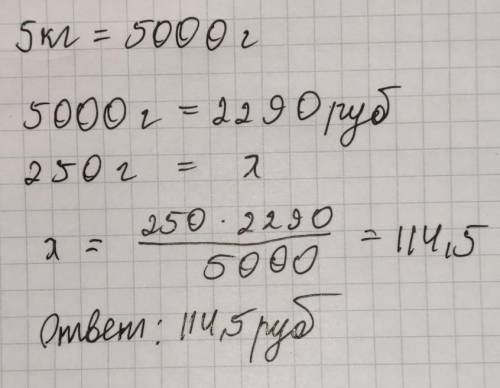 5кг = 5000г
5000г = 2290 руб
250г = x
x = 250 · 2290 / 5000 = 114,5
Ответ: 114,5 руб